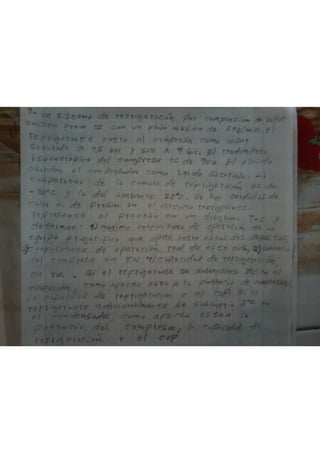 En un sistema de refrigeración por compresión de vapor
circula freon 12 con un flujo másico de 6 kg/min. el
refrigerante entra al compresor como vapor
saturado a 1,5 bar y sale a 7 bar. El rendimiento
isoentropico del compresor es de 70%. El fluido
abandona el condensador como liquido saturado. La
temperatura de la camara de refrigeración es de
-10°C y la del ambiente 22°C. No hay perdidas de
carga ni de presión en el circuito refrigerante.
represente el proceso en un diagrama T-S y
determine: 1) maximo de operación de un
equipo frigorifico que opera entre
2) coeficiente de operación real de este ciclo, 3) potencia
del compresor en KW, 4) capacidad de refrigeración,
en KW. Si el refrigerante se en el
como afecta esto a la potencia de compresor,
la capacidad de refrigeración y el cop. Si el
refrigerante adicionalmente se
el condensador como afecta esto a la
potencia del compresor, la capacidad de
refrigeración y el cop.